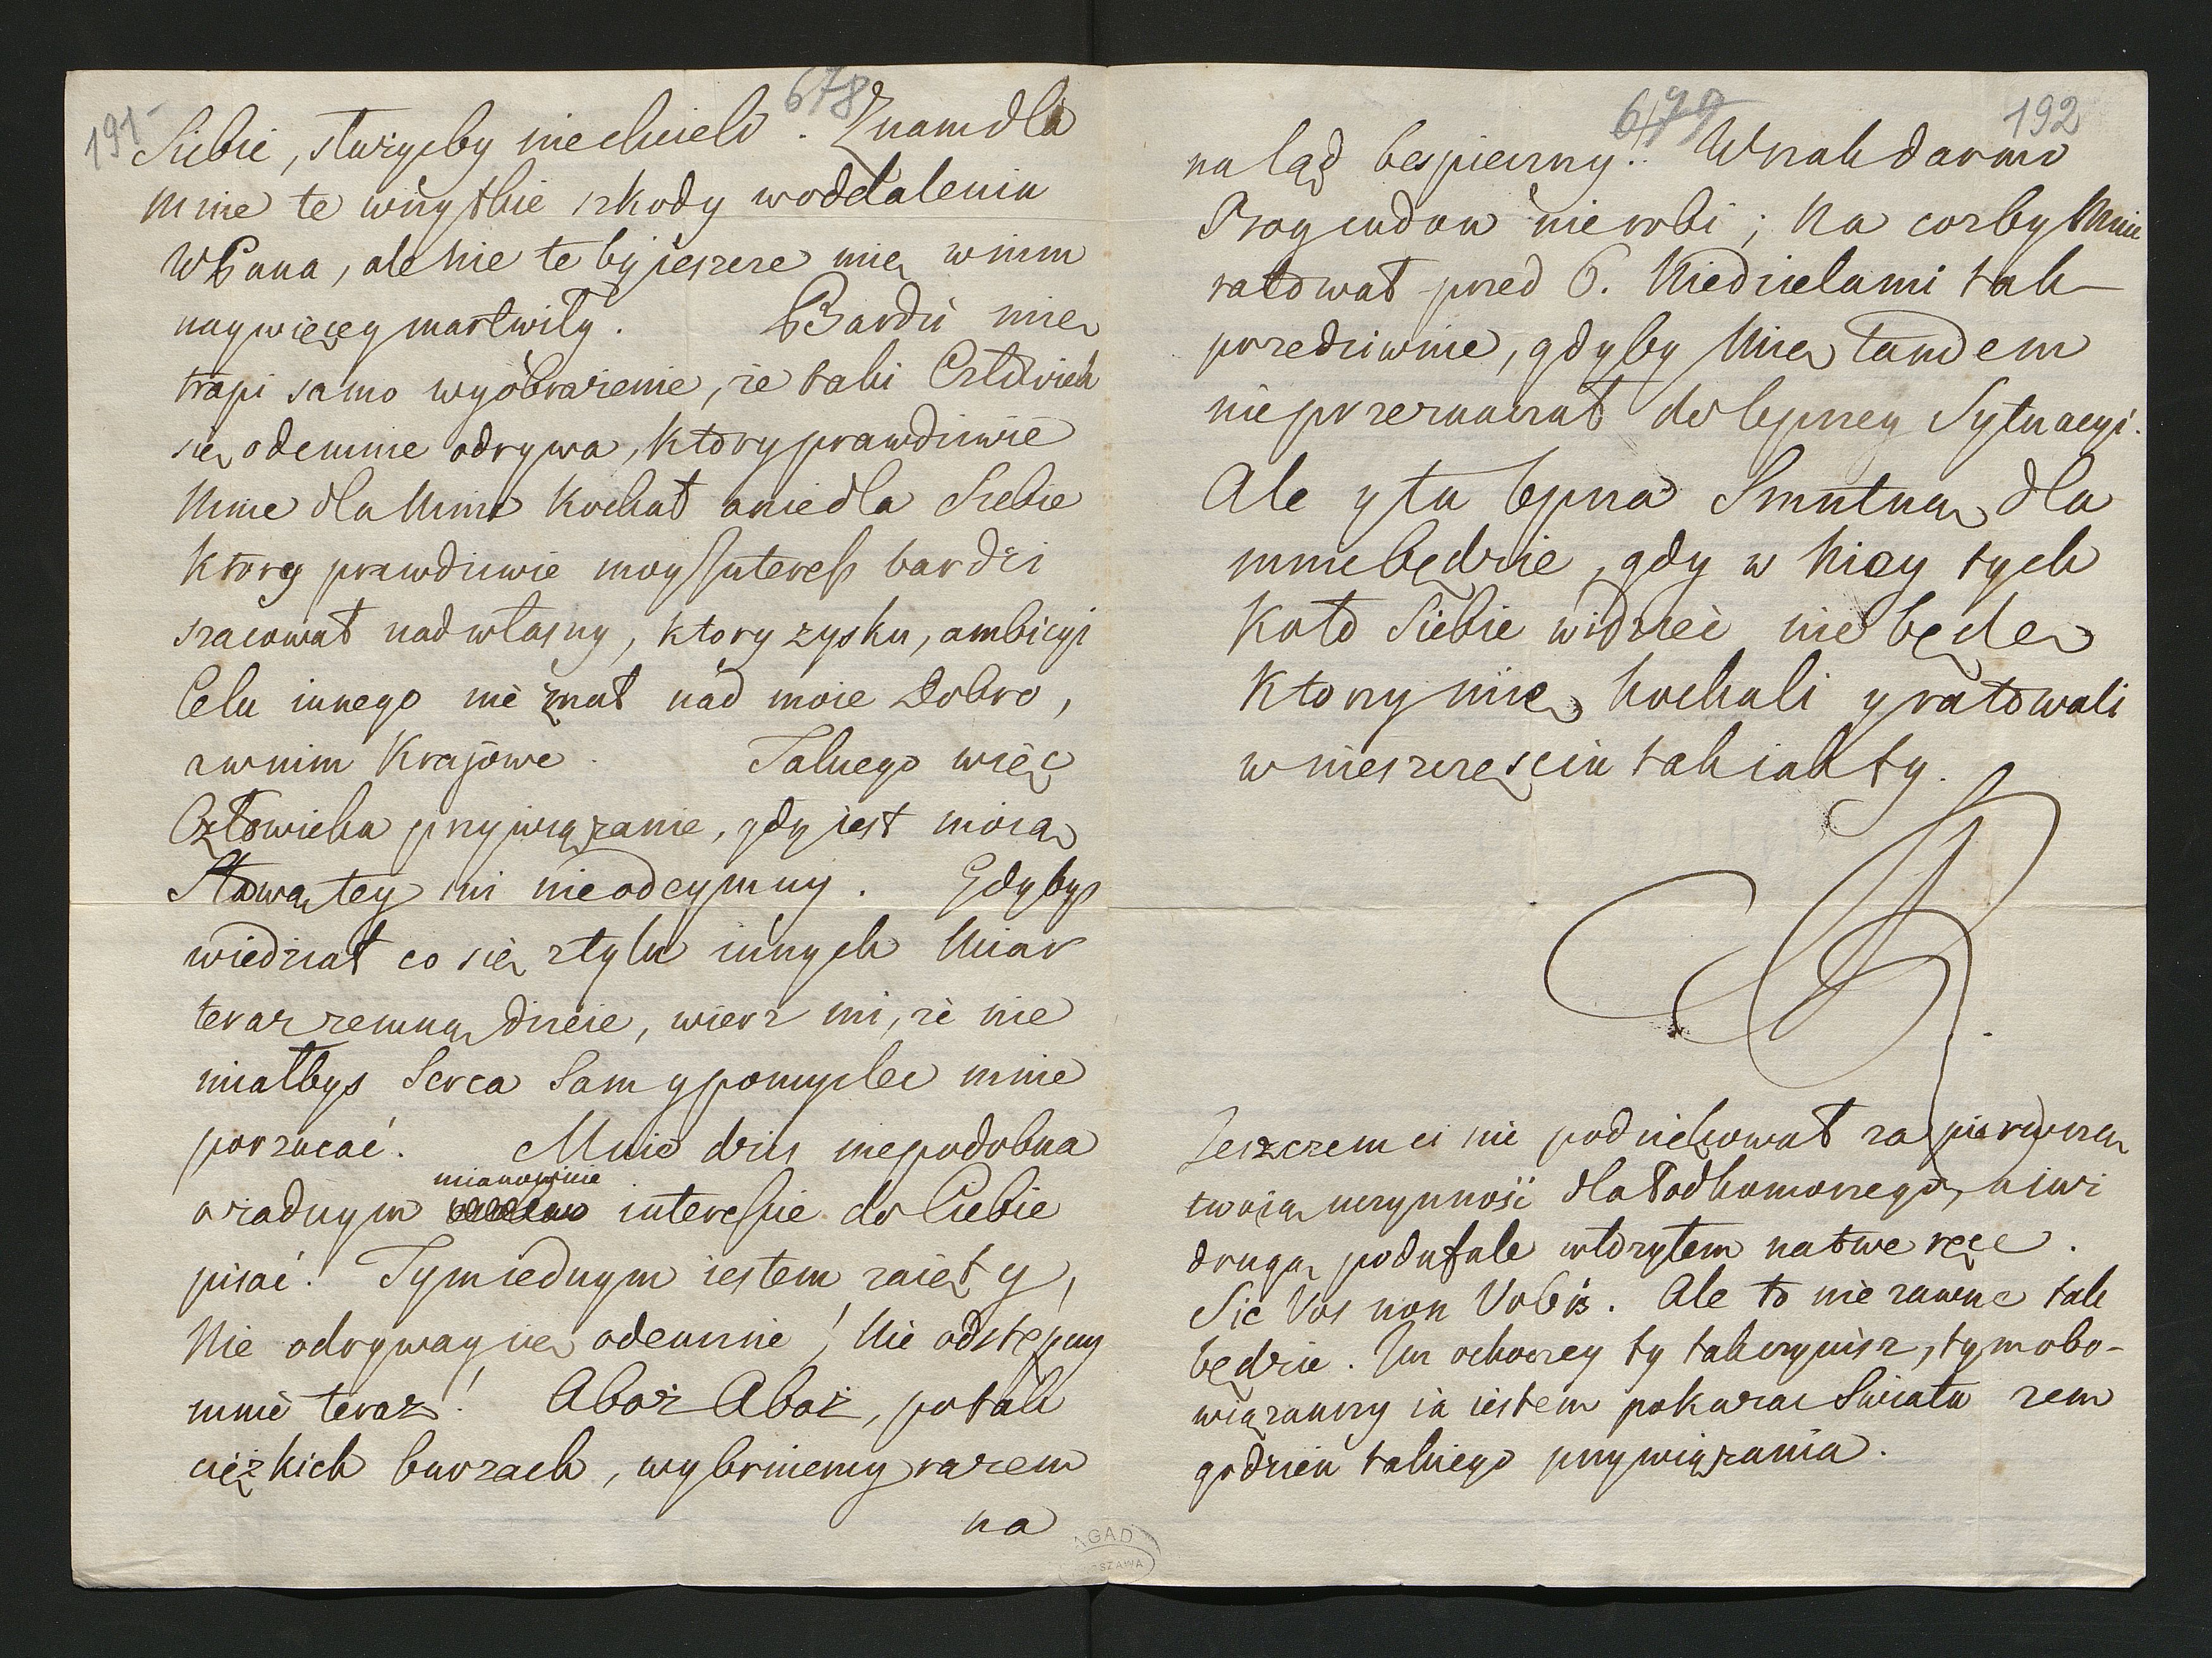 191
678
Siebie, służyćby niechcieli. Znam dla
mnie te wszytkie szkody w oddaleniu
WPana, ale nie te by ieszcze mię w nim
naywięcey martwiły. Bardzi mię
trapi samo wyobrażenie, że taki Człowiek
się odemnie odrywa, ktory prawdziwie
Mnie dla Mnie kochał a nie dla Siebie
ktory prawdziwie moy Interess bardzi
szacował nad własny, ktory zysku, ambicyi
Celu innego nie znał nad moie Dobro,
a w nim Krajowe. Takiego więc
Człowieka przywiązanie, gdy jest moią
Sławą, tey mi nie odeymuy. Gdybyś
wiedział co się z tylu innych Miar
teraz zemną dzieie, wierz mi, że nie
miałbyś Serca Sam y pomyśleć mnie
porzucać. Mnie dziś niepodobna
mianowinie
o żadnym interessie do Ciebie
pisać. Tym iednym iestem zaięty,
Nie odryway się odemnie! Nie odstępuy
mnie teraz! Aboż Aboż, po tak
cięzkich burzach, wybrniemy razem
na
679
192
na ląd bespieczny!. Wszak darmo
Bog cudow nie robi; Na cozby Mnie
ratował przed 6. Niedzielami tak
przedziwnie, gdyby Mię tandem
nie przeznaczał do lepszey Sytuacyi.
Ale y ta lepsza Smutną dla
mnie będzie, gdy w Niey tych
Koło Siebie widzieć nie będę
Ktorzy mię kochali y ratowali
w nieszczęściu tak iak ty.
Jeszczem ci nie podziękował za pierwszą
twoią uczynność dla Podkomorzego, a iuż
drugą poufale włożyłem na twe ręce.
Sic Vos non Vobis. Ale to nie zawsze tak
będzie. Im ochoczey ty tak czynisz, tym obo-
wiązańszy ia iestem pokazać Swiatu żem
godzien takiego przywiązania.
AGAD